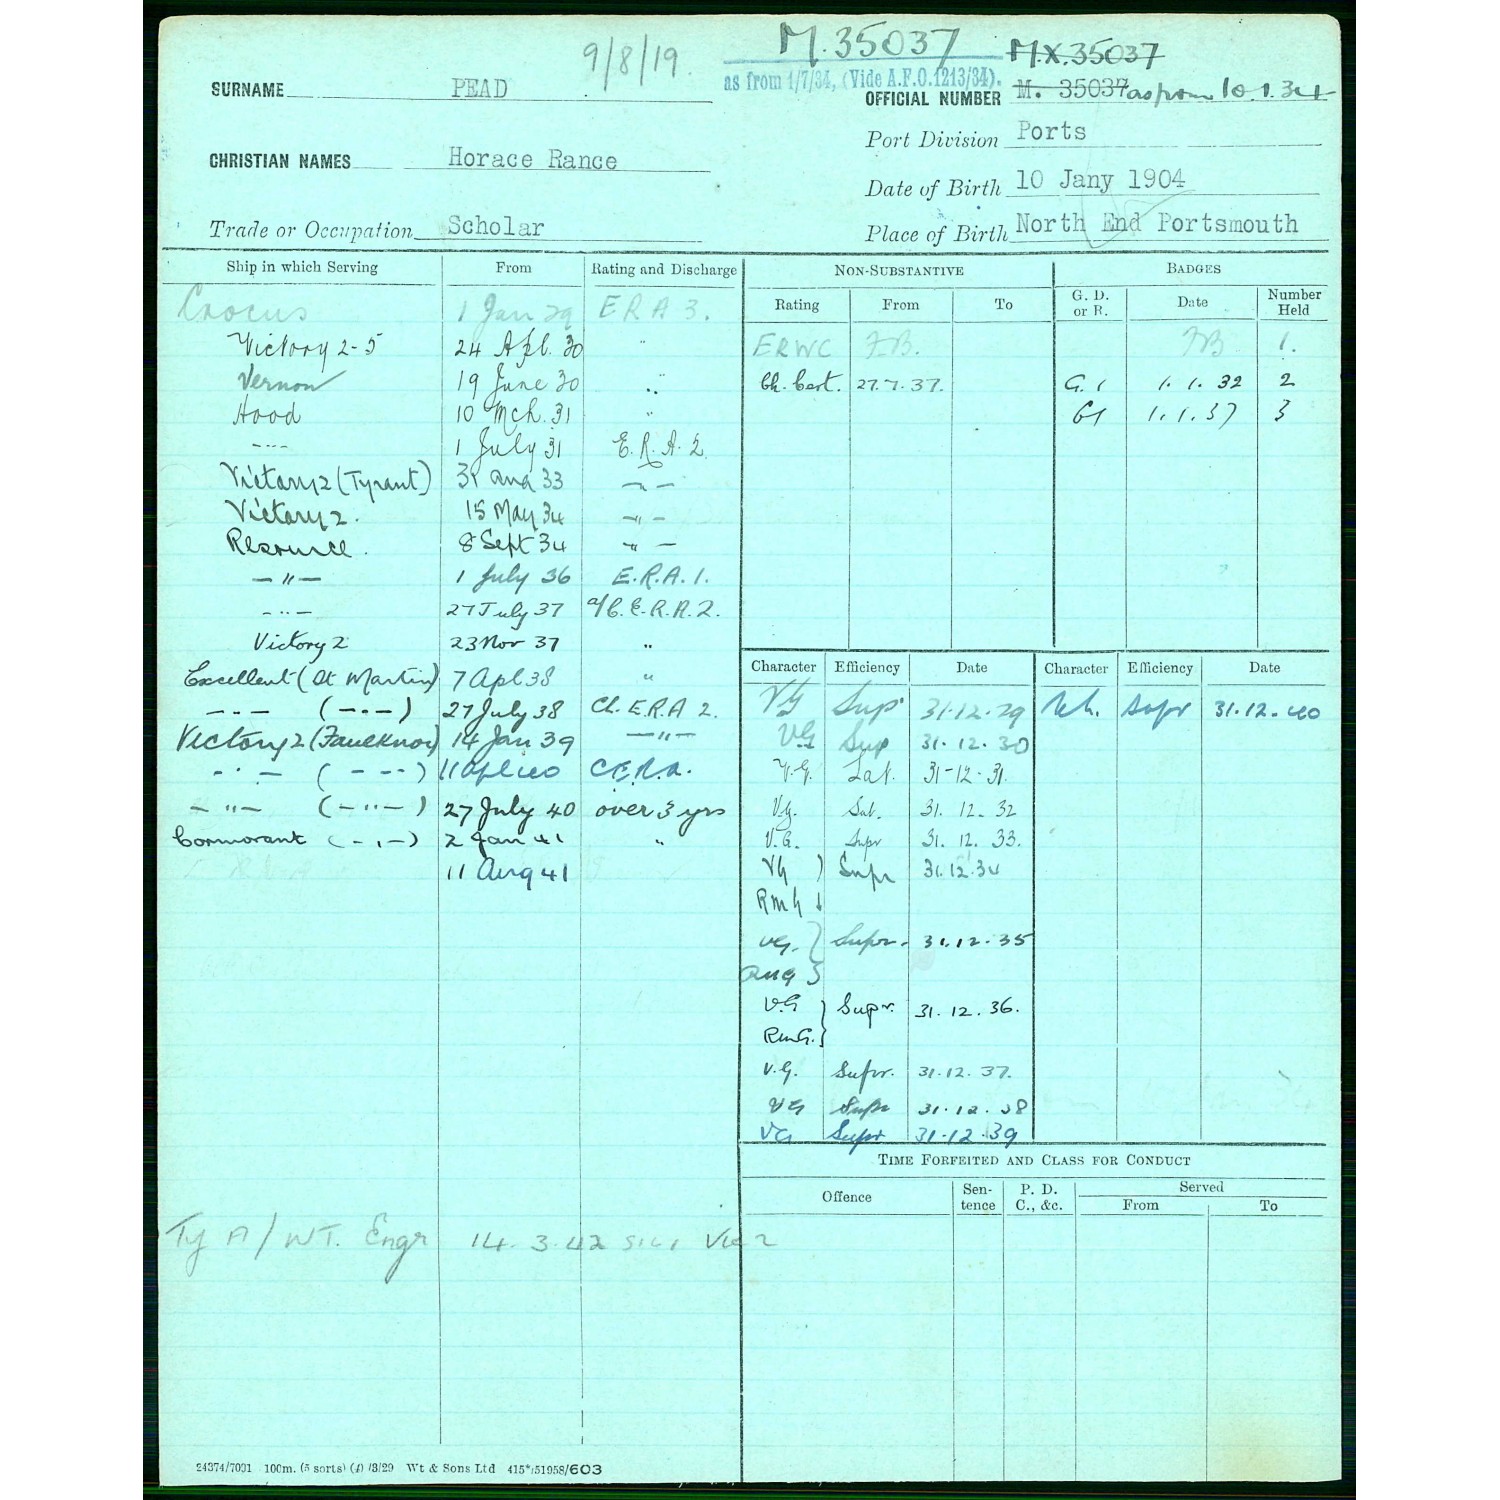 9/8/19.
M.35037
as from 1/7/34, (Vide A.F.O.1213/34).
M.X.35037
SURNAME PEAD
OFFICIAL NUMBER M. 35037 as from 10.1.34
Port Division Ports
CHRISTIAN NAMES Horace Rance
Date of Birth 10 Jany 1904
Trade or Occupation Scholar
Place of Birth North End Portsmouth
Ship in which Serving From Rating and Discharge
Crocus 1 Jan 29 E R A 3.
Victory 2-5 24 Apl. 30 "
Vernon 19 June 30 "
Hood 10 Mch. 31 "
-"- 1 July 31 E.R.A.2
Victory 2 (Tyrant) 31 Aug 33 -"-
Victory 2. 15 May 34 -"-
Resource. 8 Sept 34 -"-
-"- 1 July 36 E.R.A.1.
-"- 27 July 37 a/C.E.R.A.2.
Victory 2 23 Nov 37 "
Excellent (St Martin) 7 Apl 38 "
-"- (-"-) 27 July 38 Ch. E.R.A 2.
Victory 2 (Faulknor) 14 Jan 39 -"-
-"- (-"-) 11 Apl 40 C.E.R.A.
-"- (-"-) 27 July 40 over 3 yrs
Cormorant (-"-) 2 Jan 41 "
11 Aug 41
Ty A/WT. Engr 14.3.42 Vic 2
NON-SUBSTANTIVE
Rating From To
ERWC F.B.
Ch. Cert. 27.7.37.
BADGES
G. D. or R. Date Number Held
FB 1.
G.1 1.1.32 2
G1 1.1.37 3
Character Efficiency Date Character Efficiency Date
VG Sup 31.12.29 Supr 31.12.40
VG Sup 31.12.30
V.G. Sat. 31-12-31
V.G. Sat. 31.12.32
V.G. Supr 31.12.33.
VG ) Supr 31.12.34
RMG
VG. } Supr. 31.12.35
V.G } Supr. 31.12.36.
RMG.
V.G. Supr. 31.12.37.
VG Supr 31.12.38
VG Supr 31.12.39
TIME FORFEITED AND CLASS FOR CONDUCT
Offence Sentence P. D. C., &c. Served
From To
24374/7091 100m. (5 sorts) (4) /8/29 Wt & Sons Ltd 415*/51958/603